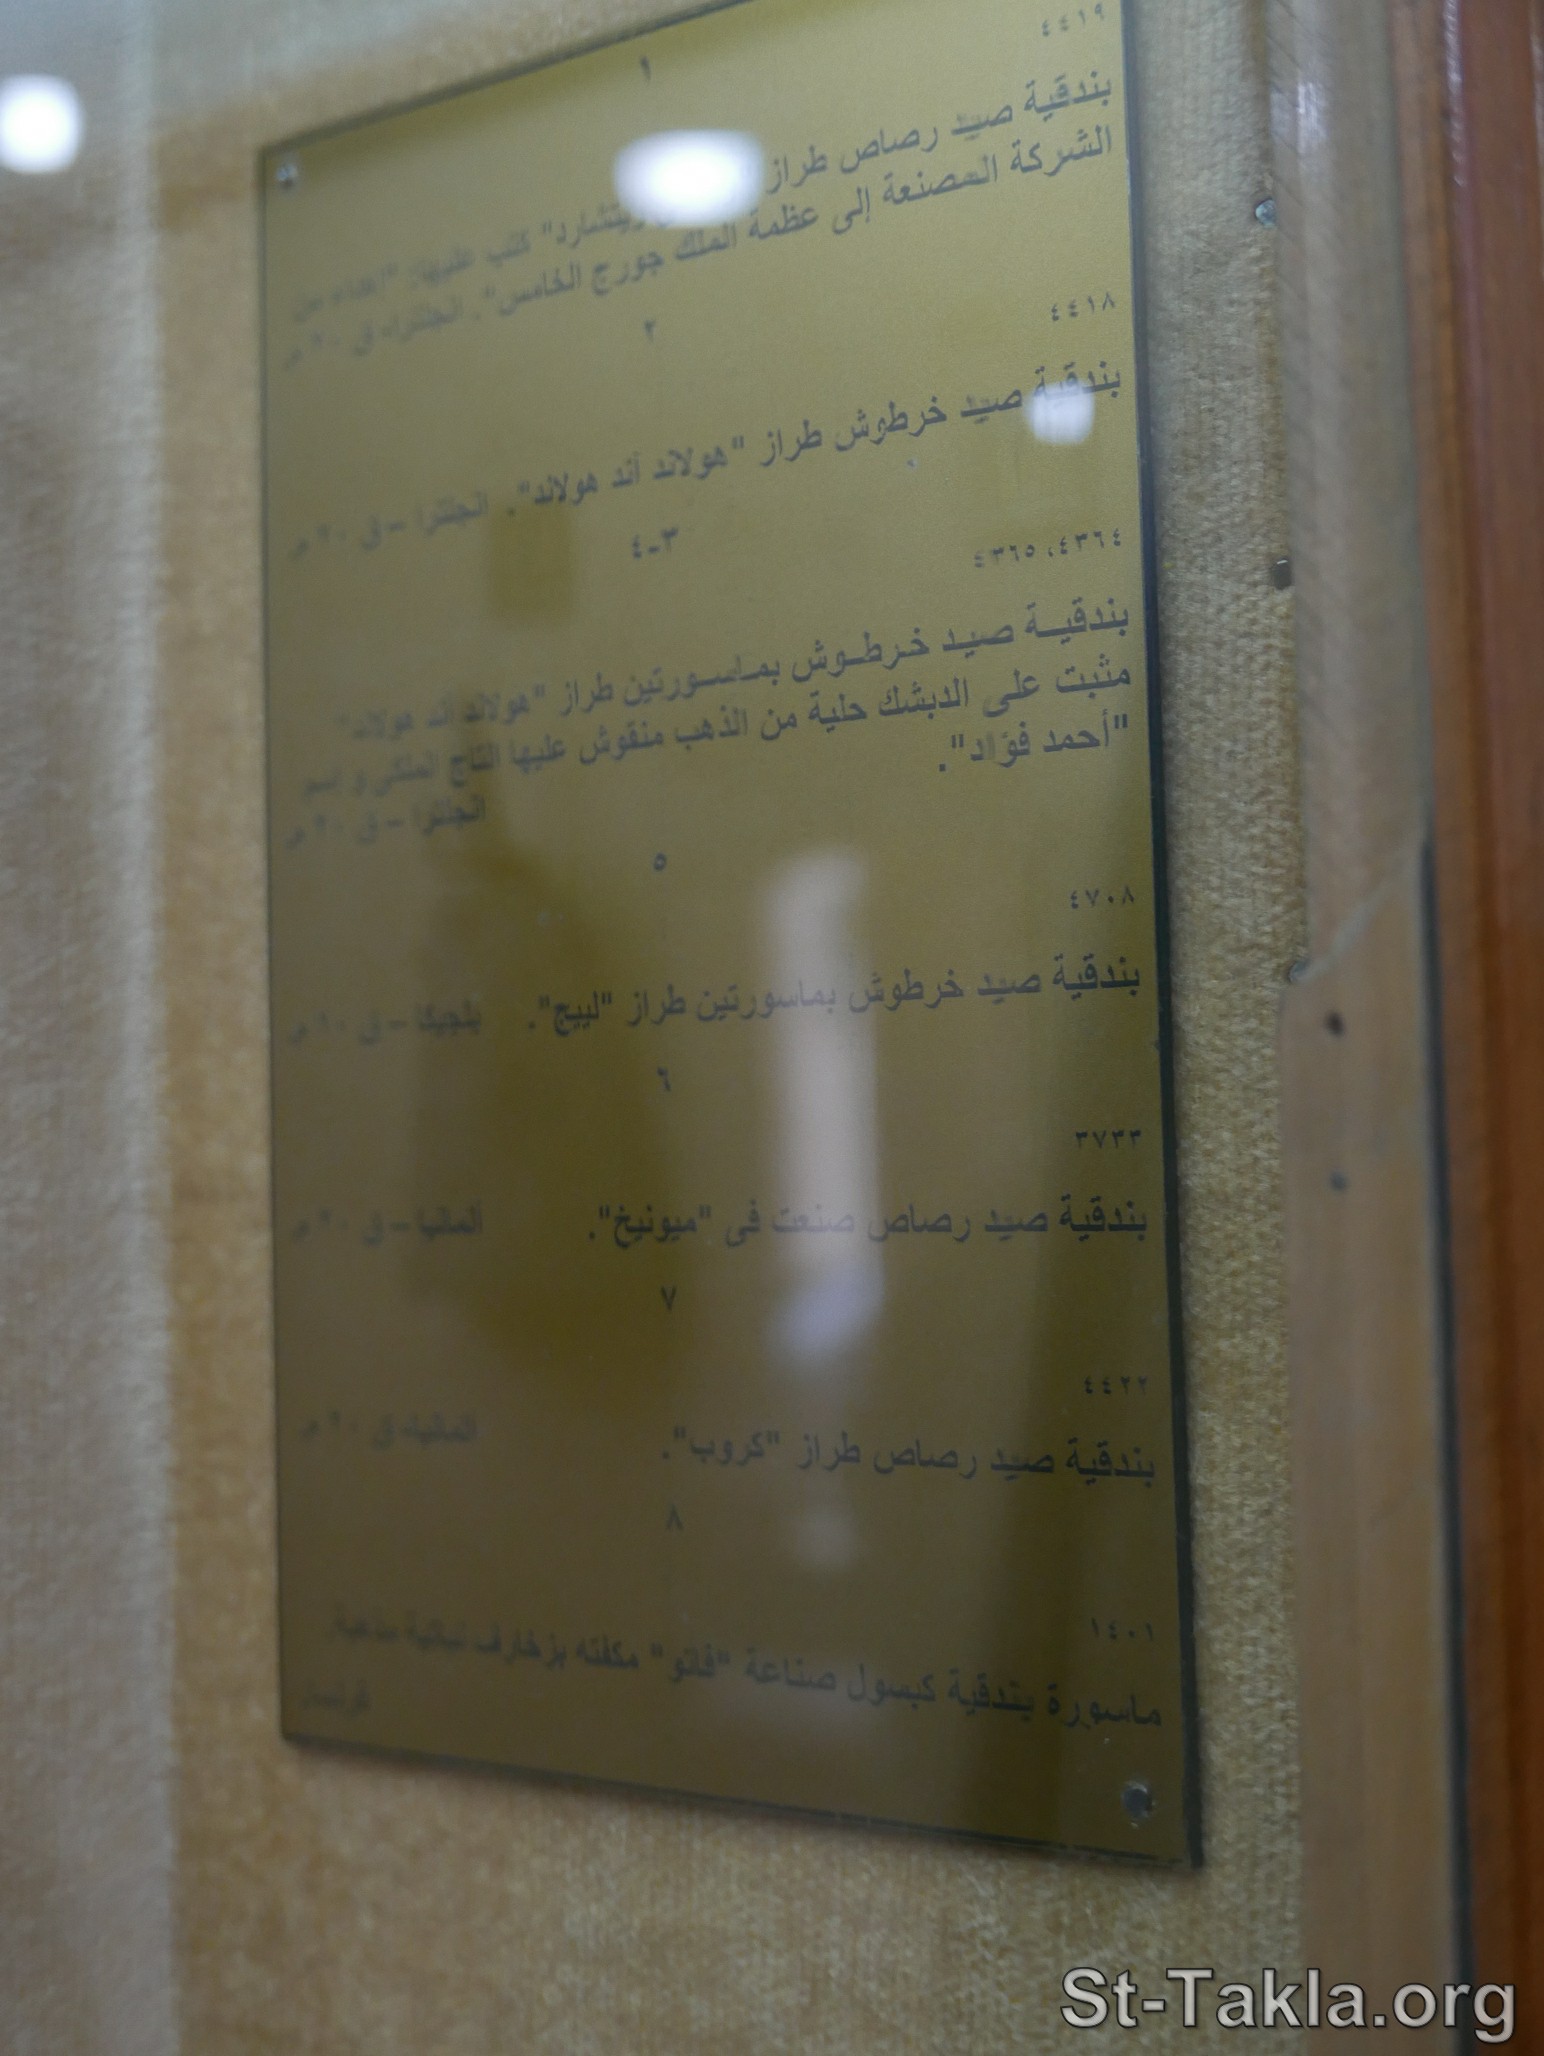 ٤٤١٩
١
بندقية صيد رصاص طراز ريتشارد" كتب عليها: "إهداء من
الشركة المصنعة إلى عظمة الملك جورج الخامس". انجلترا، ق ٢٠ م
٤٤١٨
٢
بندقية صيد خرطوش طراز "هولاند آند هولاند". انجلترا – ق ٢٠ م
٤٣٦٤، ٤٣٦٥
٣-٤
بندقيـة صيد خرطوش بماسورتين طراز "هولاند آند هولاند"
مثبت على الدبشك حلية من الذهب منقوش عليها التاج الملكى و اسم
"أحمد فؤاد". انجلترا – ق ٢٠ م
٤٧٠٨
٥
بندقية صيد خرطوش بماسورتين طراز "لييج". بلجيكا – ق م
٣٧٣٣
٦
بندقية صيد رصاص صنعت فى "ميونيخ". ألمانيا – ق ٢٠ م
٤٤٢٢
٧
بندقية صيد رصاص طراز "كروب". المانيا، ق ٢٠ م
١٤٠١
٨
ماسورة بندقية كبسول صناعة "فاتو" مكفته بزخارف نباتية مذهبة.
فرنسا
St-Takla.org